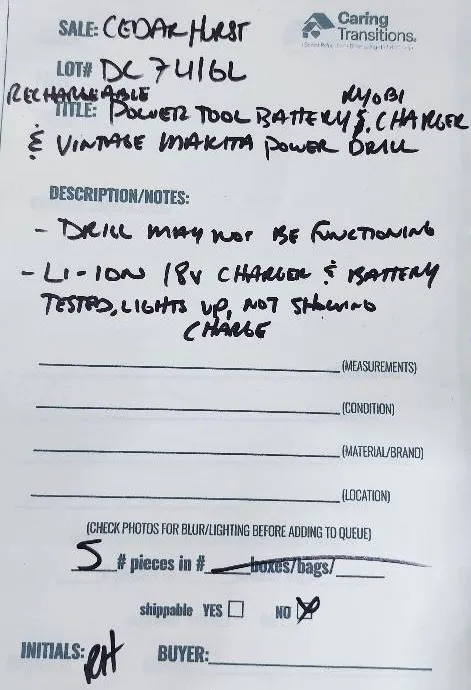 SALE: CEDARHURST
Caring Transitions.
LOT# DC7416L
RECHARGEABLE RYOBI
TITLE: POWER TOOL BATTERY & CHARGER
& VINTAGE MAKITA POWER DRILL
DESCRIPTION/NOTES:
- DRILL MAY NOT BE FUNCTIONING
- LI-ION 18V CHARGER & BATTERY
TESTED, LIGHTS UP, NOT SHOWING
CHARGE
(MEASUREMENTS)
(CONDITION)
(MATERIAL/BRAND)
(LOCATION)
(CHECK PHOTOS FOR BLUR/LIGHTING BEFORE ADDING TO QUEUE)
5 # pieces in # boxes/bags/
shippable YES NO
INITIALS: RH BUYER: